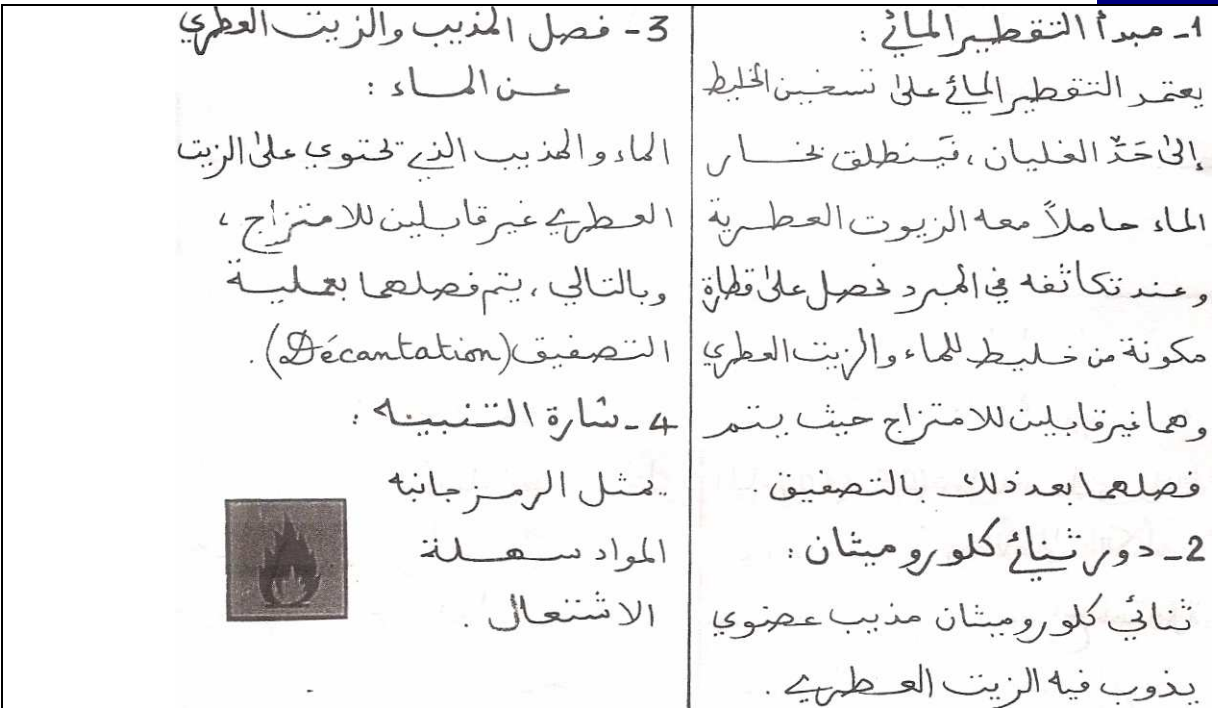 1- مبدأ التقطير المائي :
يعتمد التقطير المائي على تسخين الخليط
إلى حَدِّ الغليان ، فَيَنطلق بخار
الماء حاملاً معه الزيوت العطرية
وعند تكاثفه في المبرد نحصل على قطارة
مكونة من خليط للماء والزيت العطري
وهما غير قابلين للامتزاج حيث يتم
فصلهما بعد ذلك بالتصفيق .
2- دور ثنائي كلورو ميثان :
ثنائي كلورو ميثان مذيب عضوي
يذوب فيه الزيت العطري .
3- فصل المذيب والزيت العطري
عن الماء :
الماء والمذيب الذي تحتوي على الزيت
العطري غير قابلين للامتزاج ،
وبالتالي ، يتم فصلهما بعملية
التصفيق (Décantation) .
4- شارة التنبيه :
يمثل الرمز جانبه
المواد سهلة
الاشتعال .